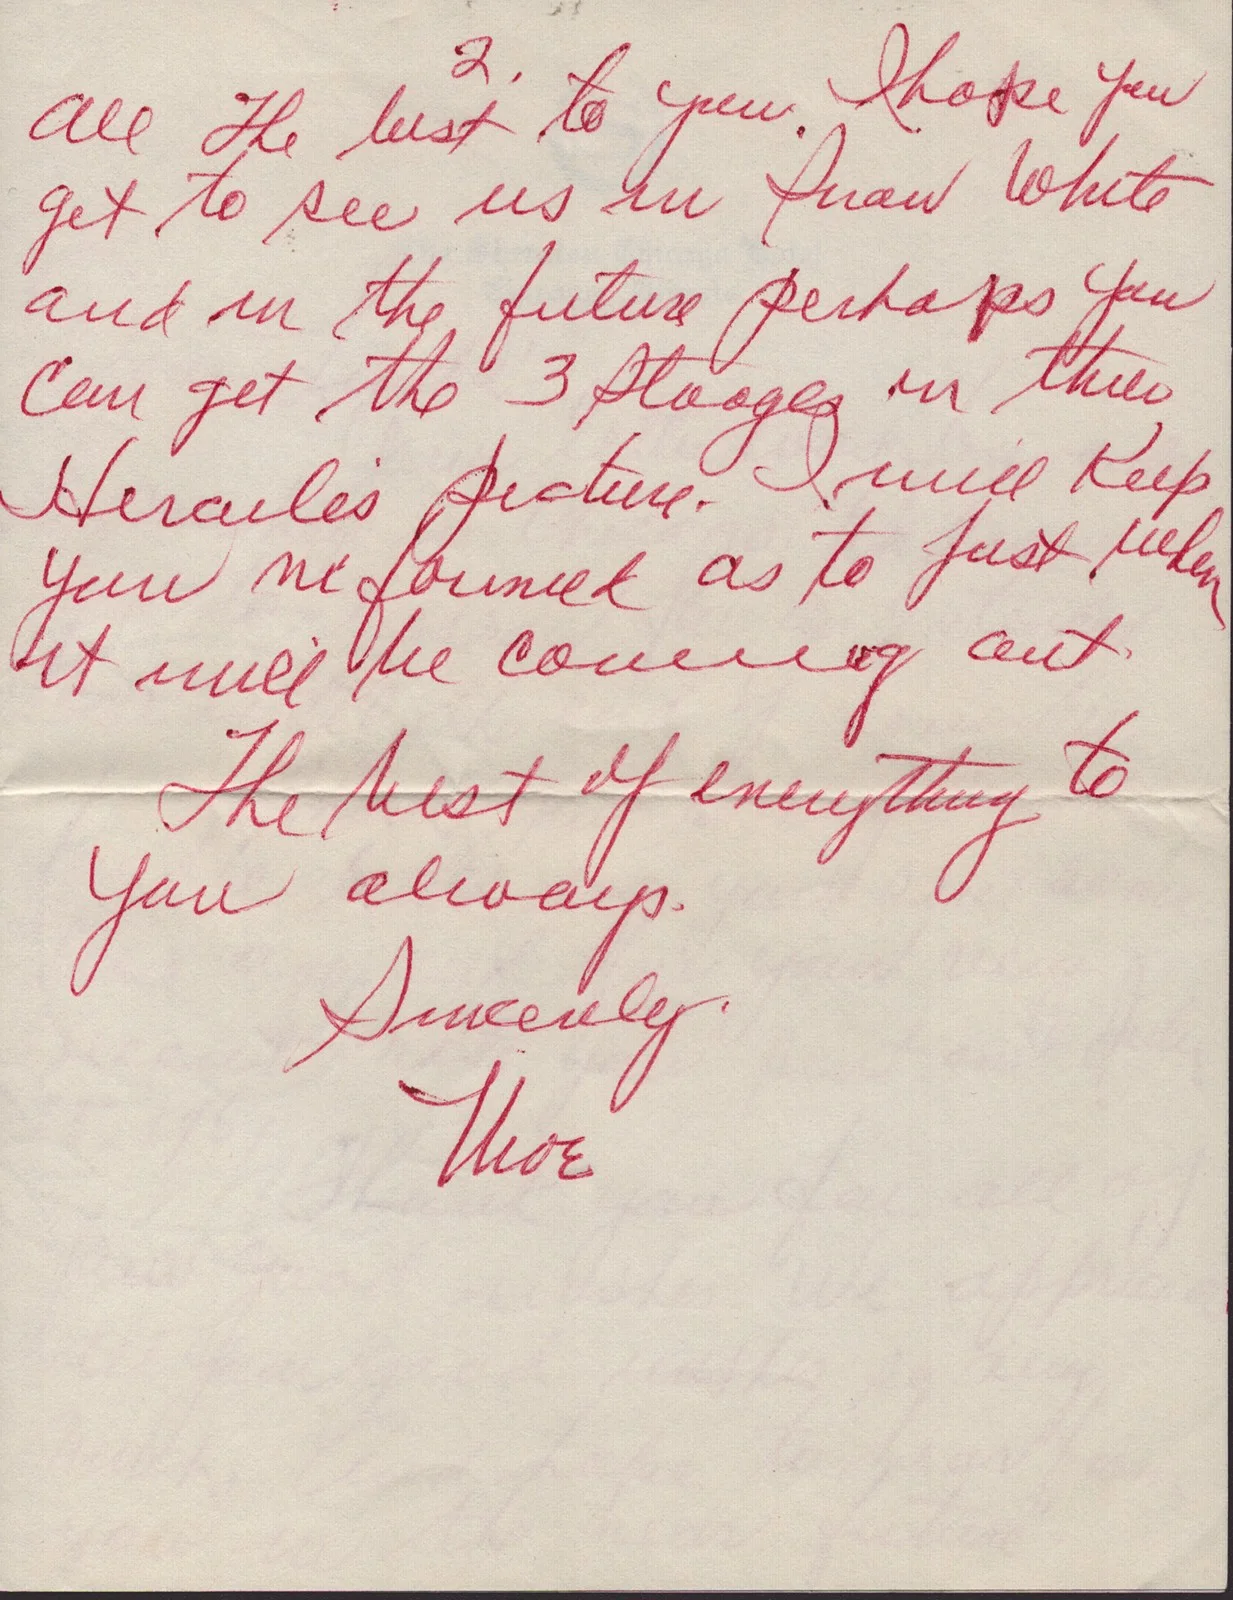 2.
All the best to you. I hope you
get to see us in Snow White
and in the future perhaps you
can get the 3 Stooges in their
Hercules picture. I will keep
you informed as to just when
it will be coming out.
The best of everything to
you always.
Sincerely.
Moe